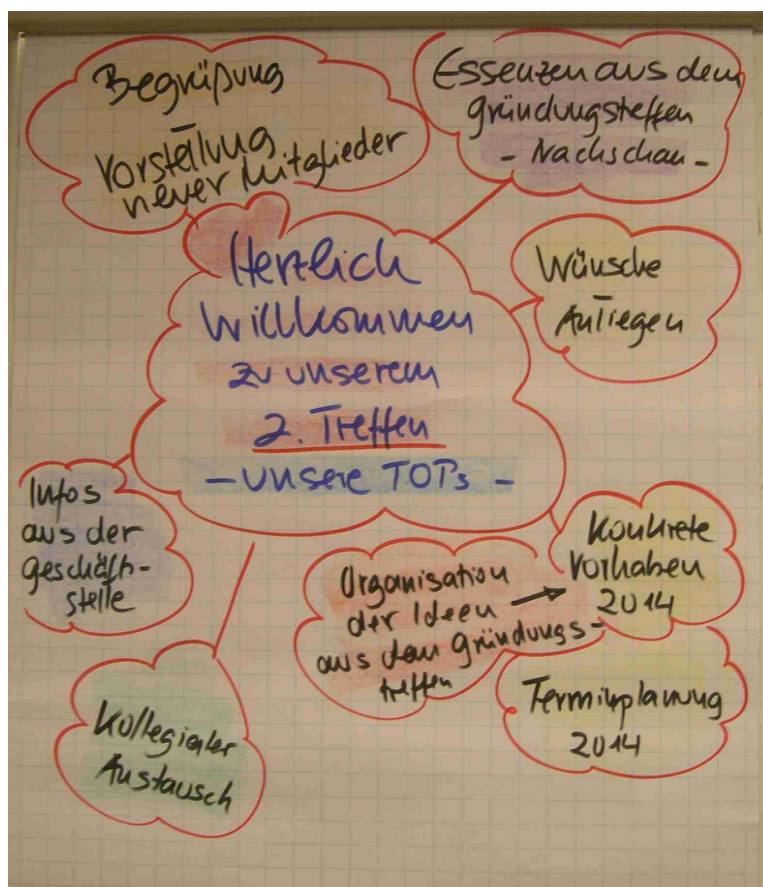 Begrüßung
Vorstellung
neuer Mitglieder
Essenzen aus dem
gründungstreffen
- Nachschau -
Herzlich
Willkommen
zu unserem
2. Treffen
- unsere TOPs -
Wünsche
Anliegen
Infos
aus der
geschäft-
stelle
Konkrete
Vorhaben
2014
Organisation
der Ideen
aus dem gründungs-
treffen
Terminplanung
2014
Kollegialer
Austausch